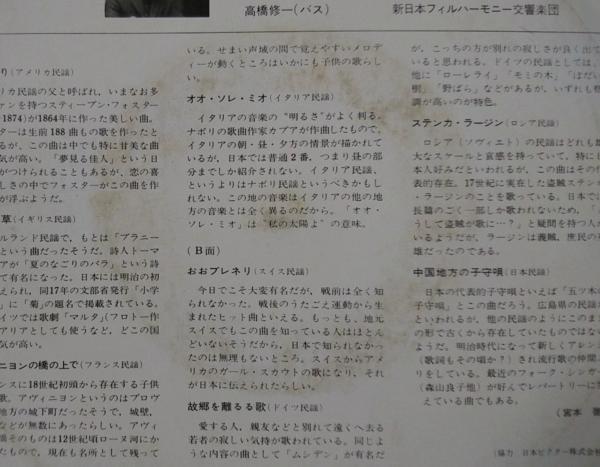 高橋修一(バス)
新日本フィルハーモニー交響楽団
り(アメリカ民謡)
リカ民謡の父と呼ばれ、いまなお多
ァンを持つスティーブン・フォスター
1874)が1864年に作った美しい曲。
ターは生前188曲もの歌を作ったと
るが、この曲は中でも特に甘美な曲
気が高い。「夢見る佳人」という日
がつけられることもあるが、恋の喜
しさの中でフォスターがこの曲を作
が浮ぶようだ。
草(イギリス民謡)
ルランド民謡で、もとは「ブラニー
という曲だったそうだ。詩人トーマ
アが「夏のなごりのバラ」という詩
て有名になった。日本には明治の初
えられ、同17年の文部省発行「小学
」に「菊」の題名で掲載されている。
イツでは歌劇「マルタ」(フロトー作
アリアとしても使うなど、どこの国
気が高い。
ニヨンの橋の上で(フランス民謡)
ンスに18世紀初頭から存在する子供
歌。アヴィニヨンというのはプロヴ
地方の城下町だったそうで、城壁、
などが無数にあったらしい。アヴィ
橋そのものは12世紀頃ローヌ河にか
たもので、現在も名所として残って
いる。せまい声域の間で覚えやすいメロデ
ィーが動くところはいかにも子供の歌らし
い。
オオ・ソレ・ミオ(イタリア民謡)
イタリアの音楽の“明るさ”がよく判る。
ナポリの歌曲作家カプアが作曲したもので、
イタリアの朝・昼・夕方の情景が描かれて
いるが、日本では普通2番、つまり昼の部
分までしか紹介されない。イタリア民謡、
というよりはナポリ民謡というべきかもし
れない。この地の音楽はイタリアの他の地
方の音楽とは全く異るのだから。「オオ・
ソレ・ミオ」は“私の太陽よ”の意味。
(B面)
おおブレネリ(スイス民謡)
今日でこそ大変有名だが、戦前は全く知
られなかった。戦後のうたごえ運動から生
まれたヒット曲といえる。もっとも、地元
スイスでもこの曲を知っている人はほとん
どいないそうだから、日本で知られなかっ
たのは無理もないところ。スイスからアメ
リカのガール・スカウトの歌になり、それ
が日本に伝えられたらしい。
故郷を離るる歌(ドイツ民謡)
愛する人、親友などと別れて遠くへ去る
若者の寂しい気持が歌われている。同じよ
うな内容の曲として「ムシデン」が有名だ
が、こっちの方が別れの寂しさが良く出て
いると思われる。ドイツの民謡としては、
他に「ローレライ」「モミの木」「ぼだい
樹」「野ばら」などがあるが、いずれも格
調が高いのが特色。
ステンカ・ラージン(ロシア民謡)
ロシア(ソヴィエト)の民謡はどれも雄
大なスケールと哀感を持っていて、特に日
本人好みだといわれるが、この曲はその代
表的存在。17世紀に実在した盗賊ステンカ
・ラージンのことを歌っている。日本では
長篇のごく一部しか歌われないため、「ど
うして盗賊が歌に…?」と疑問を持つ人が
いるようだが、ラージンは義賊、庶民の英
雄だったのである。
中国地方の子守唄(日本民謡)
日本の代表的子守唄といえば「五ツ木の
子守唄」とこの曲だろう。広島県の民謡
といわれるが、他の民謡のようにこのまま
の形で古くから存在していたものではない
ようだ。明治時代になって新しくアレンジ
(歌詞もその頃か?)され流行歌の仲間入
りをしている。最近のフォーク・シンガー
(森山良子他)が好んでレパートリーに加
えている曲でもある。
協力 日本ビクター株式会社